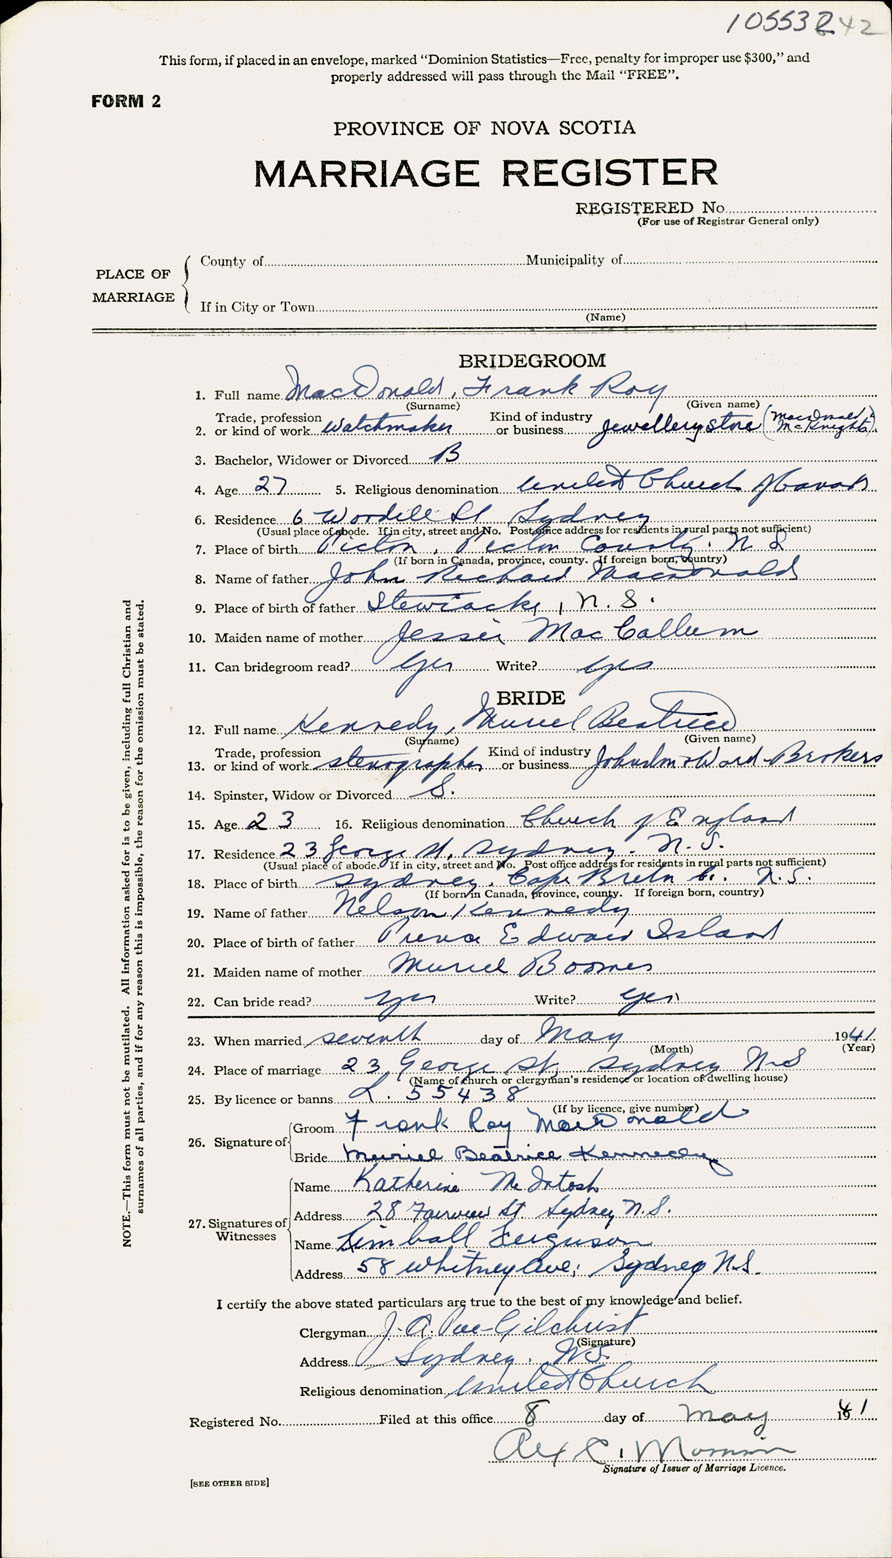 10553
42
This form, if placed in an envelope, marked “Dominion Statistics—Free, penalty for improper use $300,” and
properly addressed will pass through the Mail “FREE”.
FORM 2
PROVINCE OF NOVA SCOTIA
MARRIAGE REGISTER
REGISTERED No.
(For use of Registrar General only)
PLACE OF MARRIAGE
County of Municipality of
If in City or Town
(Name)
BRIDEGROOM
1. Full name MacDonald, Frank Roy
(Surname) (Given name)
2. Trade, profession or kind of work watchmaker Kind of industry or business Jewellery store (MacDonald & McKnight)
3. Bachelor, Widower or Divorced B
4. Age 27 5. Religious denomination United Church of Canada
6. Residence 6 Woodill St Sydney
(Usual place of abode. If in city, street and No. Post office address for residents in rural parts not sufficient)
7. Place of birth Pictou, Pictou County. N S
(If born in Canada, province, county. If foreign born, country)
8. Name of father John Richard MacDonald
9. Place of birth of father Stewiacke, N.S.
10. Maiden name of mother Jessie MacCallum
11. Can bridegroom read? yes Write? yes
BRIDE
12. Full name Kennedy, Muriel Beatrice
(Surname) (Given name)
13. Trade, profession or kind of work stenographer Kind of industry or business Johnston & Ward Brokers
14. Spinster, Widow or Divorced S.
15. Age 23 16. Religious denomination Church of England
17. Residence 23 George St, Sydney. N.S.
(Usual place of abode. If in city, street and No. Post office address for residents in rural parts not sufficient)
18. Place of birth Sydney, Cape Breton Co. N.S.
(If born in Canada, province, county. If foreign born, country)
19. Name of father Nelson Kennedy
20. Place of birth of father Prince Edward Island
21. Maiden name of mother Muriel Boomer
22. Can bride read? yes Write? yes
23. When married seventh day of May 1941
(Month) (Year)
24. Place of marriage 23 George St. Sydney N S
(Name of church or clergyman's residence or location of dwelling house)
25. By licence or banns L. 55438
(If by licence, give number)
26. Signature of Groom Frank Roy MacDonald
Bride Muriel Beatrice Kennedy
27. Signatures of Witnesses
Name Katherine McIntosh
Address 28 Fairview St. Sydney N.S.
Name Kimball Ferguson
Address 58 Whitney Ave; Sydney N.S.
I certify the above stated particulars are true to the best of my knowledge and belief.
Clergyman J. A. Gilchrist
(Signature)
Address Sydney. N.S.
Religious denomination United Church
Registered No. Filed at this office 8 day of May 1941
Alex C.
Signature of Issuer of Marriage Licence.
[SEE OTHER SIDE]
NOTE.—This form must not be mutilated. All information asked for is to be given, including full Christian and
surnames of all parties, and if for any reason this is impossible, the reason for the omission must be stated.